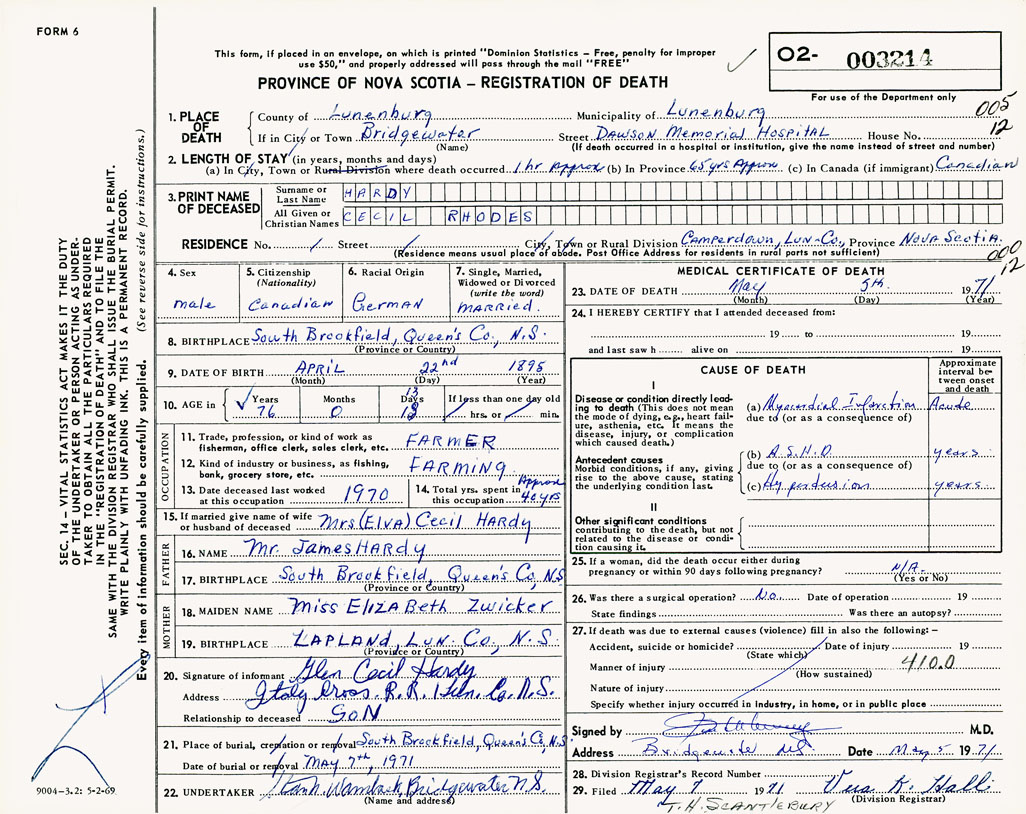 FORM 6
This form, if placed in an envelope, on which is printed "Dominion Statistics – Free, penalty for improper
use $50," and properly addressed will pass through the mail "FREE"
PROVINCE OF NOVA SCOTIA – REGISTRATION OF DEATH
O2- 003214
For use of the Department only
005
12
1. PLACE OF DEATH
County of Lunenburg Municipality of Lunenburg
If in City or Town Bridgewater Street DAWSON Memorial HOSPITAL House No.
(Name) (If death occurred in a hospital or institution, give the name instead of street and number)
2. LENGTH OF STAY (in years, months and days)
(a) In City, Town or Rural Division where death occurred 1 hr approx (b) In Province 65 yrs Approx (c) In Canada (if immigrant) Canadian
3. PRINT NAME OF DECEASED
Surname or Last Name HARDY
All Given or Christian Names CECIL RHODES
RESIDENCE No. Street City, Town or Rural Division Camperdown, Lun-Co., Province Nova Scotia.
(Residence means usual place of abode. Post Office Address for residents in rural parts not sufficient)
000
12
4. Sex
male
5. Citizenship
(Nationality)
Canadian
6. Racial Origin
German
7. Single, Married,
Widowed or Divorced
(write the word)
MARRIED.
8. BIRTHPLACE South Brookfield, Queen's Co., N.S.
(Province or Country)
9. DATE OF BIRTH APRIL 22nd 1895
(Month) (Day) (Year)
10. AGE in Years Months Days If less than one day old
13
76 0 hrs. or min.
OCCUPATION
11. Trade, profession, or kind of work as
fisherman, office clerk, sales clerk, etc. FARMER
12. Kind of industry or business, as fishing,
bank, grocery store, etc. FARMING
13. Date deceased last worked
at this occupation 1970
14. Total yrs. spent in
this occupation Approx 40 yrs
15. If married give name of wife
or husband of deceased Mrs (Elva) Cecil HARDY
FATHER
16. NAME Mr. James HARDY
17. BIRTHPLACE South Brookfield, Queen's Co, N.S
(Province or Country)
MOTHER
18. MAIDEN NAME Miss ELIZA Beth Zwicker
19. BIRTHPLACE LAPLAND, Lun. Co, N.S.
(Province or Country)
20. Signature of informant Glen Cecil Hardy
Address Italy Cross R.R. 1 Lun. Co. N.S.
Relationship to deceased SON
21. Place of burial, cremation or removal South Brookfield, Queen's Co, N.S
Date of burial or removal MAY 7th, 1971
22. UNDERTAKER Bridgewater N.S.
(Name and address)
MEDICAL CERTIFICATE OF DEATH
23. DATE OF DEATH May 5th 1971
(Month) (Day) (Year)
24. I HEREBY CERTIFY that I attended deceased from:
19 to 19
and last saw h alive on 19
CAUSE OF DEATH
Approximate
interval be-
tween onset
and death
I
Disease or condition directly lead-
ing to death (This does not mean
the mode of dying, e.g., heart fail-
ure, asthenia, etc. It means the
disease, injury, or complication
which caused death.)
(a) Myocardial Infarction Acute
due to (or as a consequence of)
Antecedent causes
Morbid conditions, if any, giving
rise to the above cause, stating
the underlying condition last.
(b) A.S.H.D. years
due to (or as a consequence of)
(c) years
II
Other significant conditions
contributing to the death, but not
related to the disease or condi-
tion causing it.
25. If a woman, did the death occur either during
pregnancy or within 90 days following pregnancy? N/A.
(Yes or No)
26. Was there a surgical operation? No. Date of operation 19
State findings Was there an autopsy?
27. If death was due to external causes (violence) fill in also the following: –
Accident, suicide or homicide? Date of injury 19
(State which)
Manner of injury 410.0
(How sustained)
Nature of injury
Specify whether injury occurred in industry, in home, or in public place
Signed by M.D.
Address Bridgewater NS Date May 5 1971
28. Division Registrar's Record Number
29. Filed May 7 1971 Vera K. Hall
(Division Registrar)
T.H. SCANTLEBURY
SEC. 14 – VITAL STATISTICS ACT MAKES IT THE DUTY
OF THE UNDERTAKER OR PERSON ACTING AS UNDER-
TAKER TO OBTAIN ALL THE PARTICULARS REQUIRED
IN THE "REGISTRATION OF DEATH" AND TO FILE THE
SAME WITH THE DIVISION REGISTRAR WHO SHALL ISSUE THE BURIAL PERMIT.
WRITE PLAINLY WITH UNFADING INK. THIS IS A PERMANENT RECORD.
Every item of information should be carefully supplied. (See reverse side for instructions.)
9004-3.2: 5-2-69